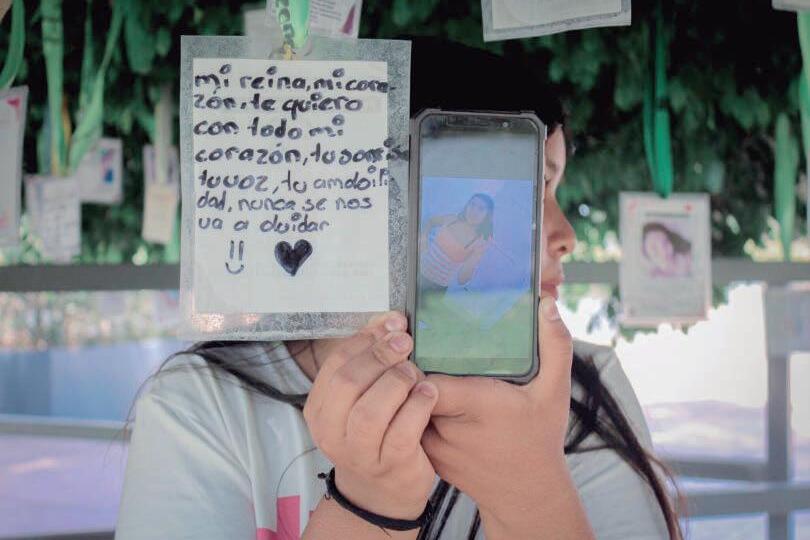 mi reina, mi cora-
zón, te quiero
con todo mi
corazón, tu sonri
tu voz, tu amabili
dad, nunca se nos
va a olvidar